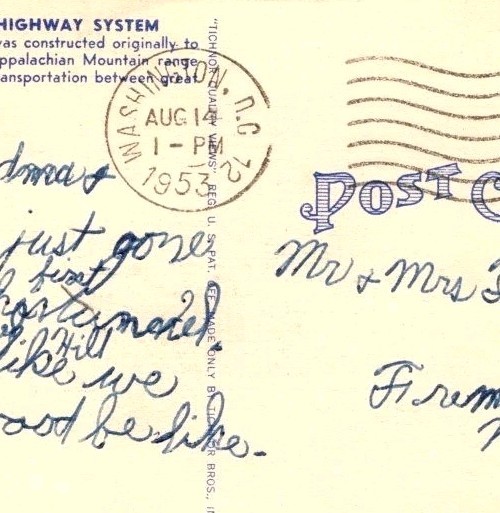 HIGHWAY SYSTEM
was constructed originally to
ppalachian Mountain range
ansportation between great
WASHINGTON, D.C. 12
AUG 14
1 - PM
1953
dma &
just gone
first
Hill
like we
be like.
"TICHNOR QUALITY VIEWS" REG. U. S. PAT. OFF. MADE ONLY BY TICHNOR BROS., IN
POST C
Mr & Mrs
Frem